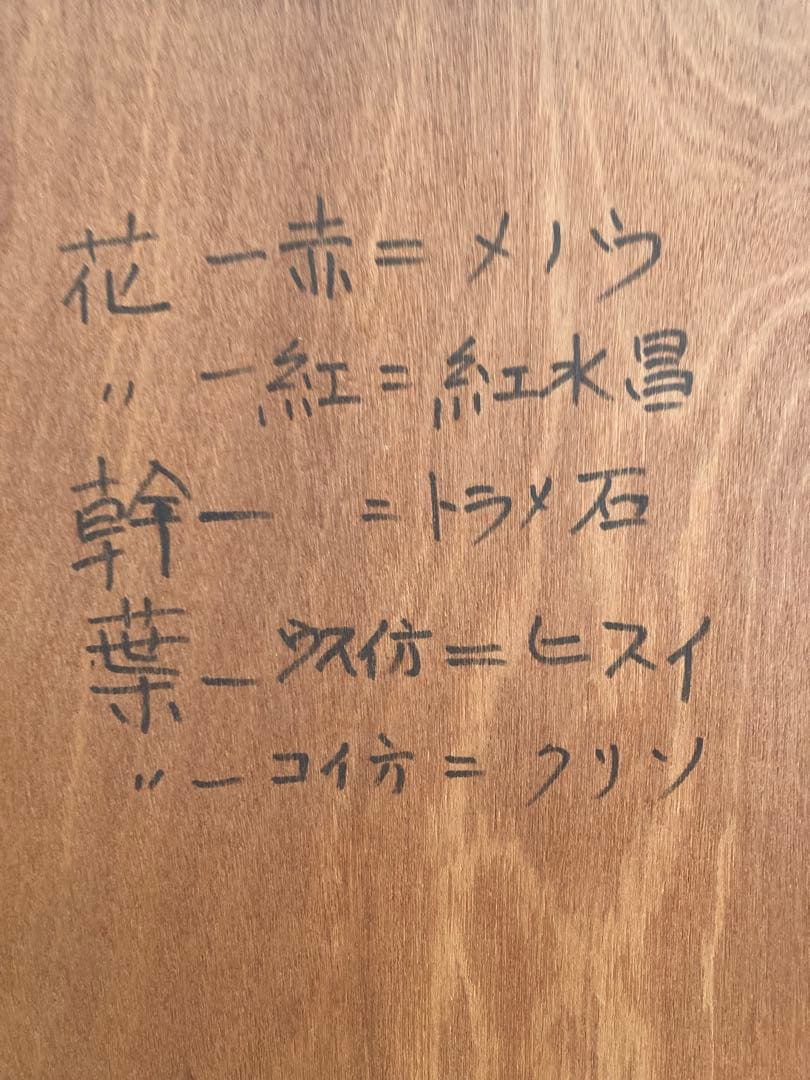 花ー赤=メノウ
〃ー紅=紅水晶
幹ー =トラメ石
葉ーウスイ方=ヒスイ
〃ーコイ方=クリソ